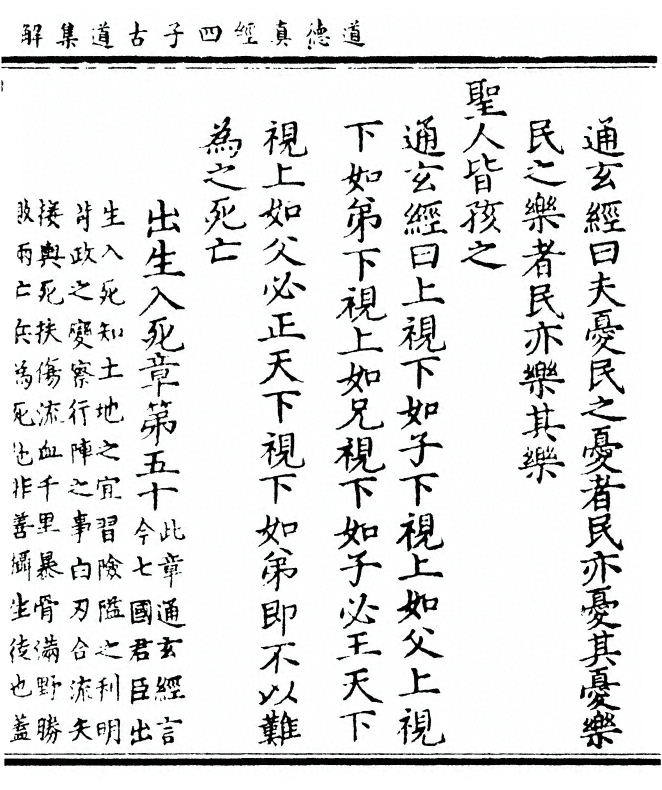 道德真經四子古道集解
通玄經曰夫憂民之憂者民亦憂其憂樂
民之樂者民亦樂其樂
聖人皆孩之
通玄經曰上視下如子下視上如父上視
下如弟下視上如兄視下如子必王天下
視上如父必正天下視下如弟即不以難
為之死亡
出生入死章第五十
此章通玄經言
今七國君臣出
生入死知土地之宜習險隘之利明
苛政之變察行陣之事白刃合流矢
接輿死扶傷流血千里暴骨滿野勝
敗兩亡兵為死也非善攝生徒也蓋